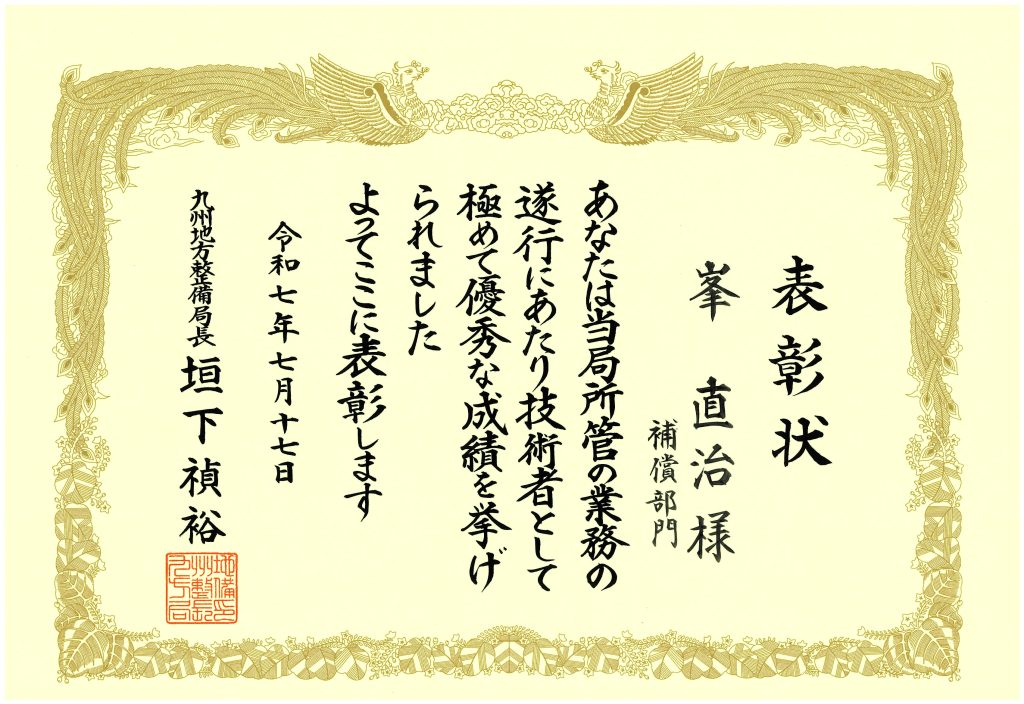 表彰状
峯 直治様
補償部門
あなたは当局所管の業務の
遂行にあたり技術者として
極めて優秀な成績を挙げ
られました
よってここに表彰します
令和七年七月十七日
九州地方整備局長 垣下禎裕